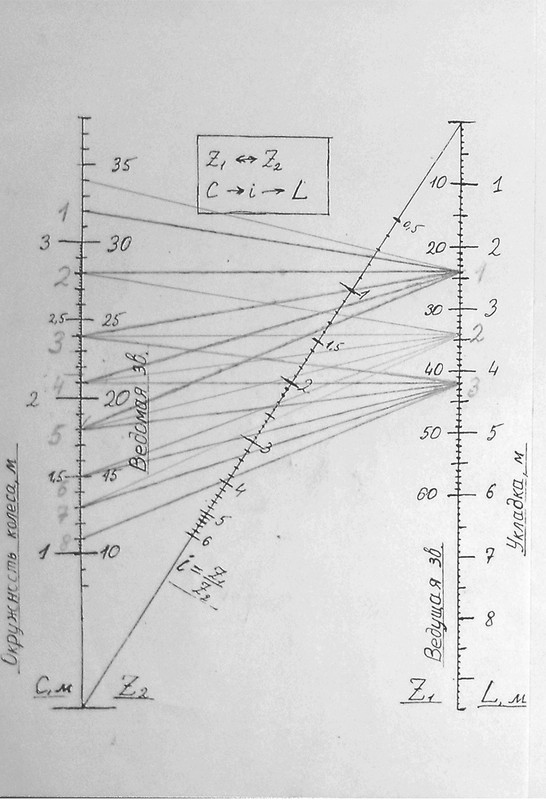 Z₁ ↔ Z₂
C → i → L
35
1
3
30
2
2,5
25
3
4
2
20
5
1,5
15
6
7
8
1
10
Окружность колеса, м
Ведомая зв.
C, м
Z₂
0,5
1
1,5
2
3
4
5
6
i = Z₁/Z₂
10
1
20
2
1
30
3
2
40
4
3
50
5
60
6
7
8
Ведущая зв.
Укладка, м
Z₁
L, м